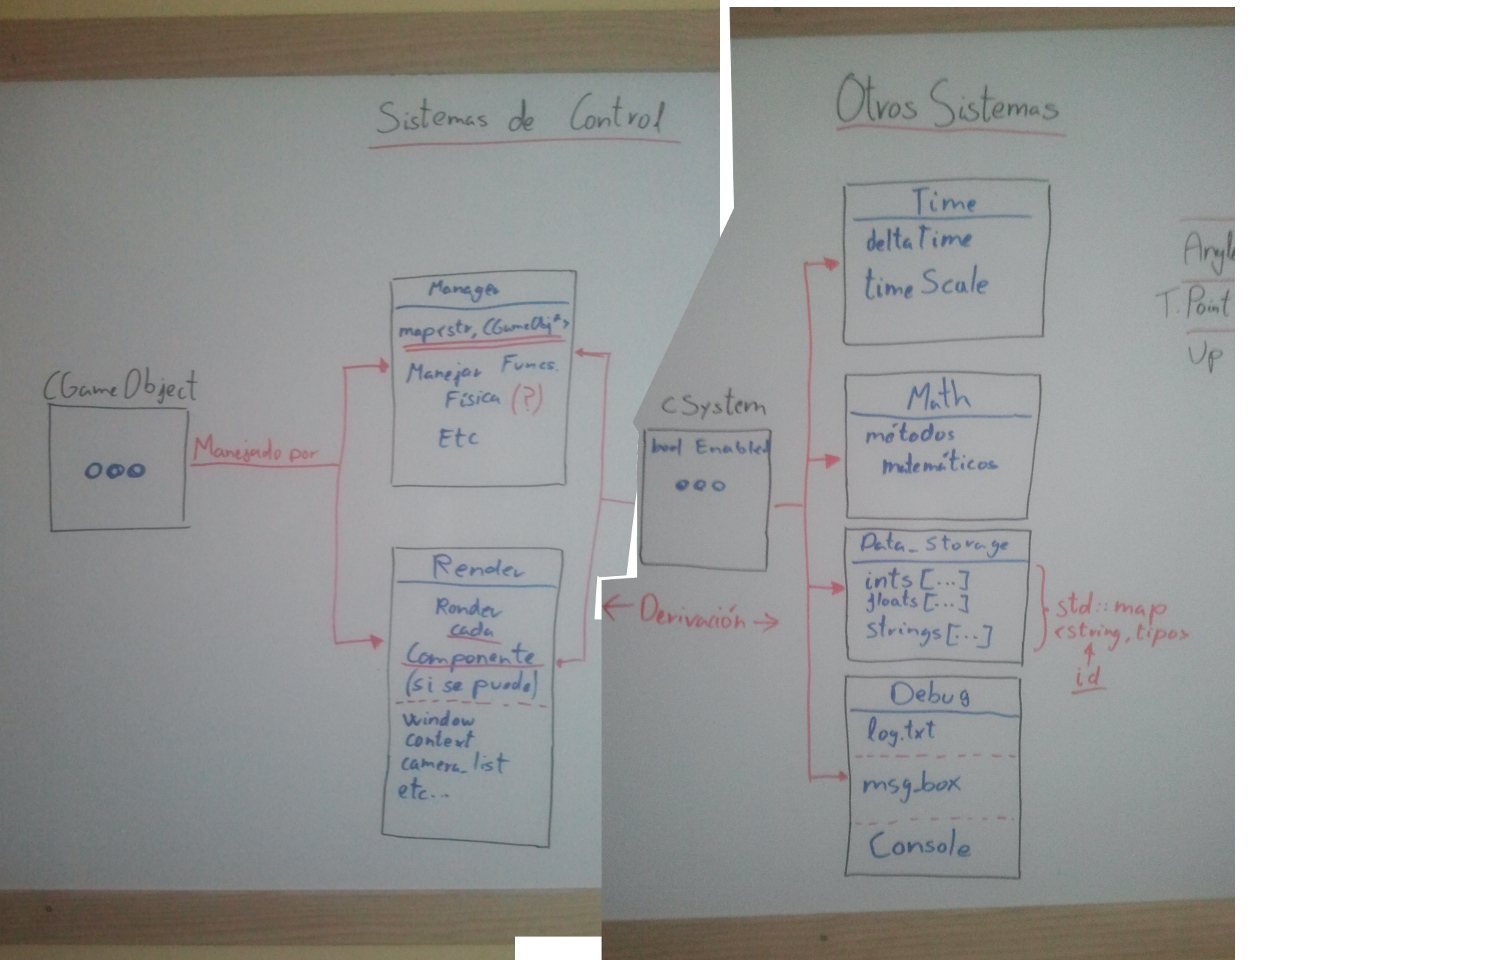 Sistemas de Control
CGameObject
Manejado por
Manager
map<str, CGameObj*>
Manejar Funcs.
Física (?)
Etc
Render
Render
cada
Componente
(si se puede)
window
context
camera_list
etc...
Otros Sistemas
cSystem
bool Enabled
← Derivación →
Time
deltaTime
timeScale
Math
métodos
matemáticos
Data_Storage
ints [...]
floats [...]
strings [...]
std::map
<string, tipos
id
Debug
log.txt
msg_box
Console
T. Point
Up